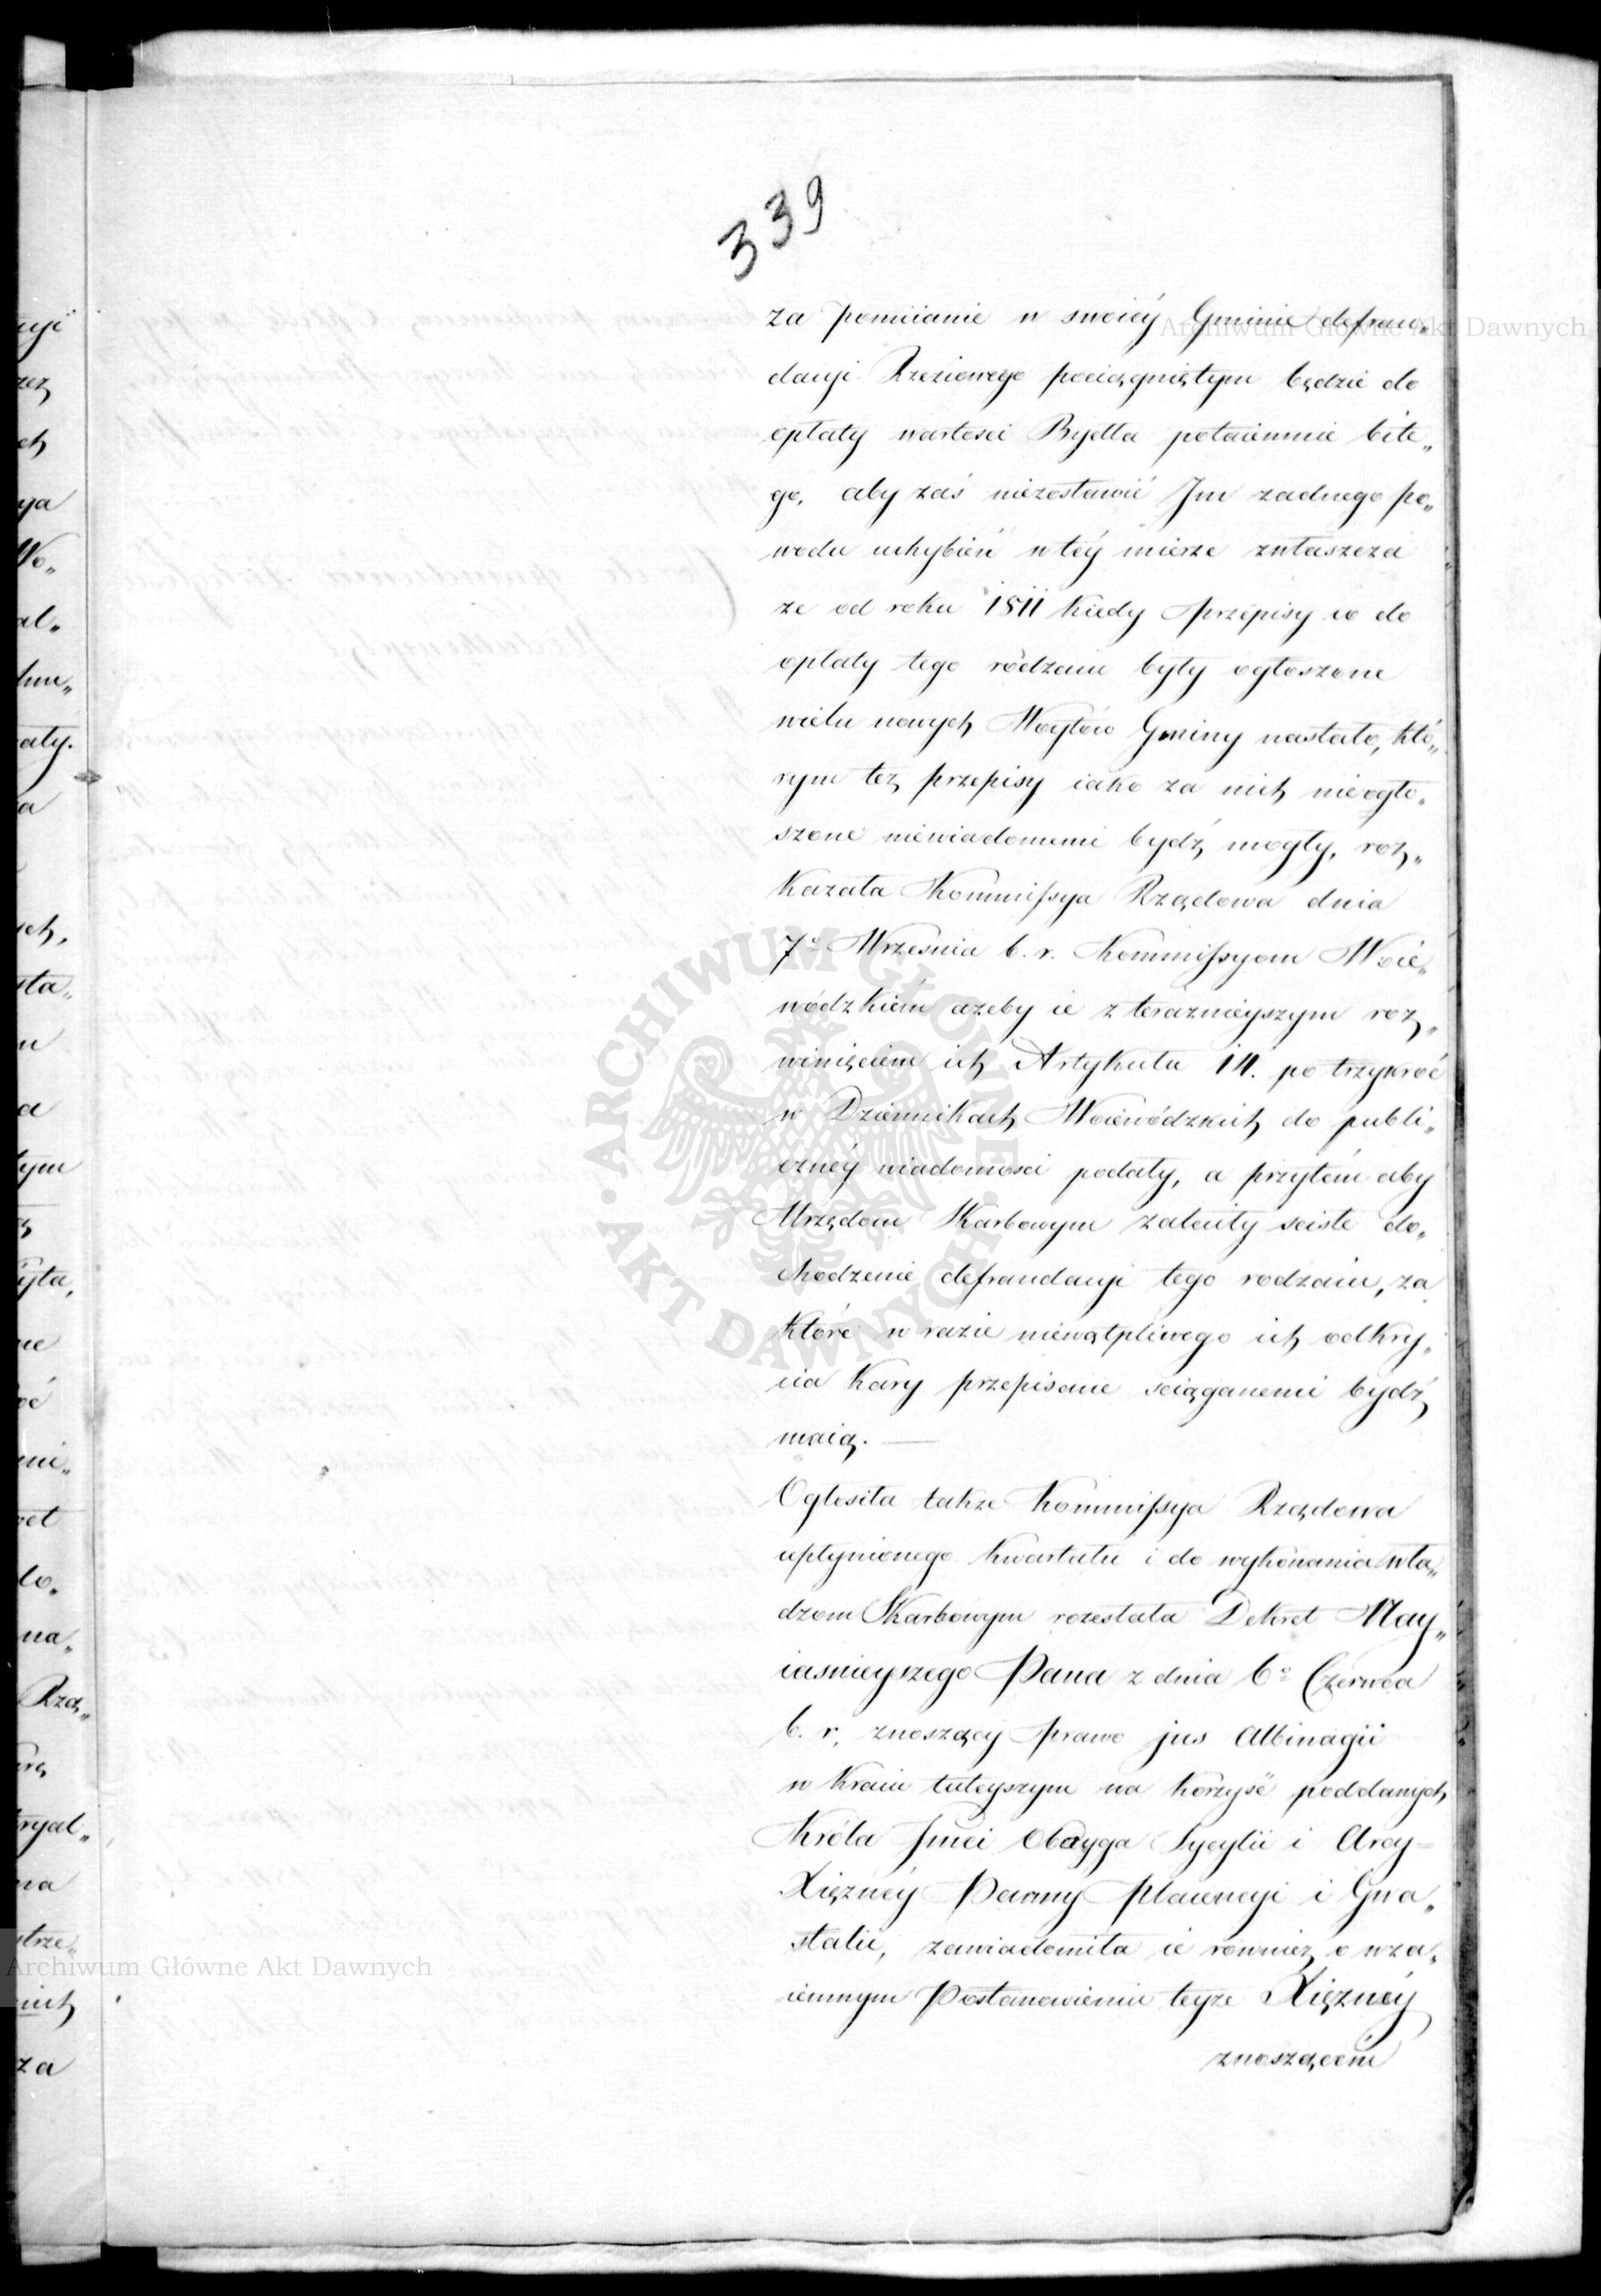 339
za pomiianie w swoiéy Gminie defrau„
dacyi Rzeziowego pociągniętym będzie do
opłaty wartosci Bydła potaiemnie bite„
go, aby zaś niezostawić Im zadnego po„
wodu uchybień w téy mierze zwłaszcza
ze od roku 1811 kiedy Przepisy co do
opłaty tego rodzaiu były ogłoszone
wielu nowych Woytów Gminy nastało, któ„
rym też przepisy iako za nich nieogło„
szone niewiadomemi bydź mogły, roz„
kazała Kommissya Rządowa dnia
7º Września b. r. Kommissyom Woie„
wódzkiém azeby ie z terazniejszym roz„
winięciem ich Artykułu 14. po trzykroć
w Dziennikach Woiewódzkich do publi„
cznéy wiadomości podały, a przytém aby
Urzędom Skarbowym zaleciły sciste do„
chodzenie defraudacyi tego rodzaiu, za
które w razie niewątpliwego ich odkry„
cia kary przepisane sciąganemi bydź
maią. —
Ogłosiła także Kommissya Rządowa
upłynionego kwartału i do wykonania wła„
dzom Skarbowym rozesłała Dekret Nay„
iasnieyszego Pana z dnia 6º Czerwca
b. r. znoszący prawo jus Albinagii
w kraiu tuteyszym na korzyść poddanych
Króla Jmci Oboyga Sycylii i Arcy=
Xiężnéy Parmy Placencyi i Gwa„
stalii, zawiadomiła ie rownież o wza„
iemnym Postanowieniu teyże Xiężnéy
znoszącém
Archiwum Główne Akt Dawnych
Archiwum Główne Akt Dawnych
ARCHIWUM GŁÓWNE • AKT DAWNYCH •